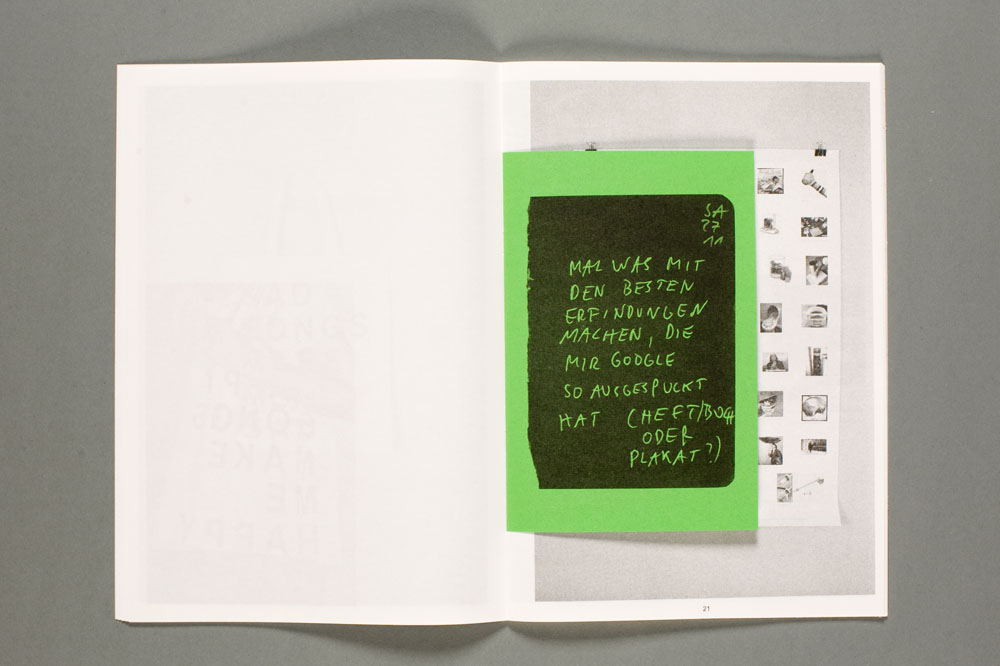 SA
27
11
MAL WAS MIT
DEN BESTEN
ERFINDUNGEN
MACHEN, DIE
MIR GOOGLE
SO AUSGESPUCKT
HAT (HEFT/BUCH
ODER
PLAKAT?)
21